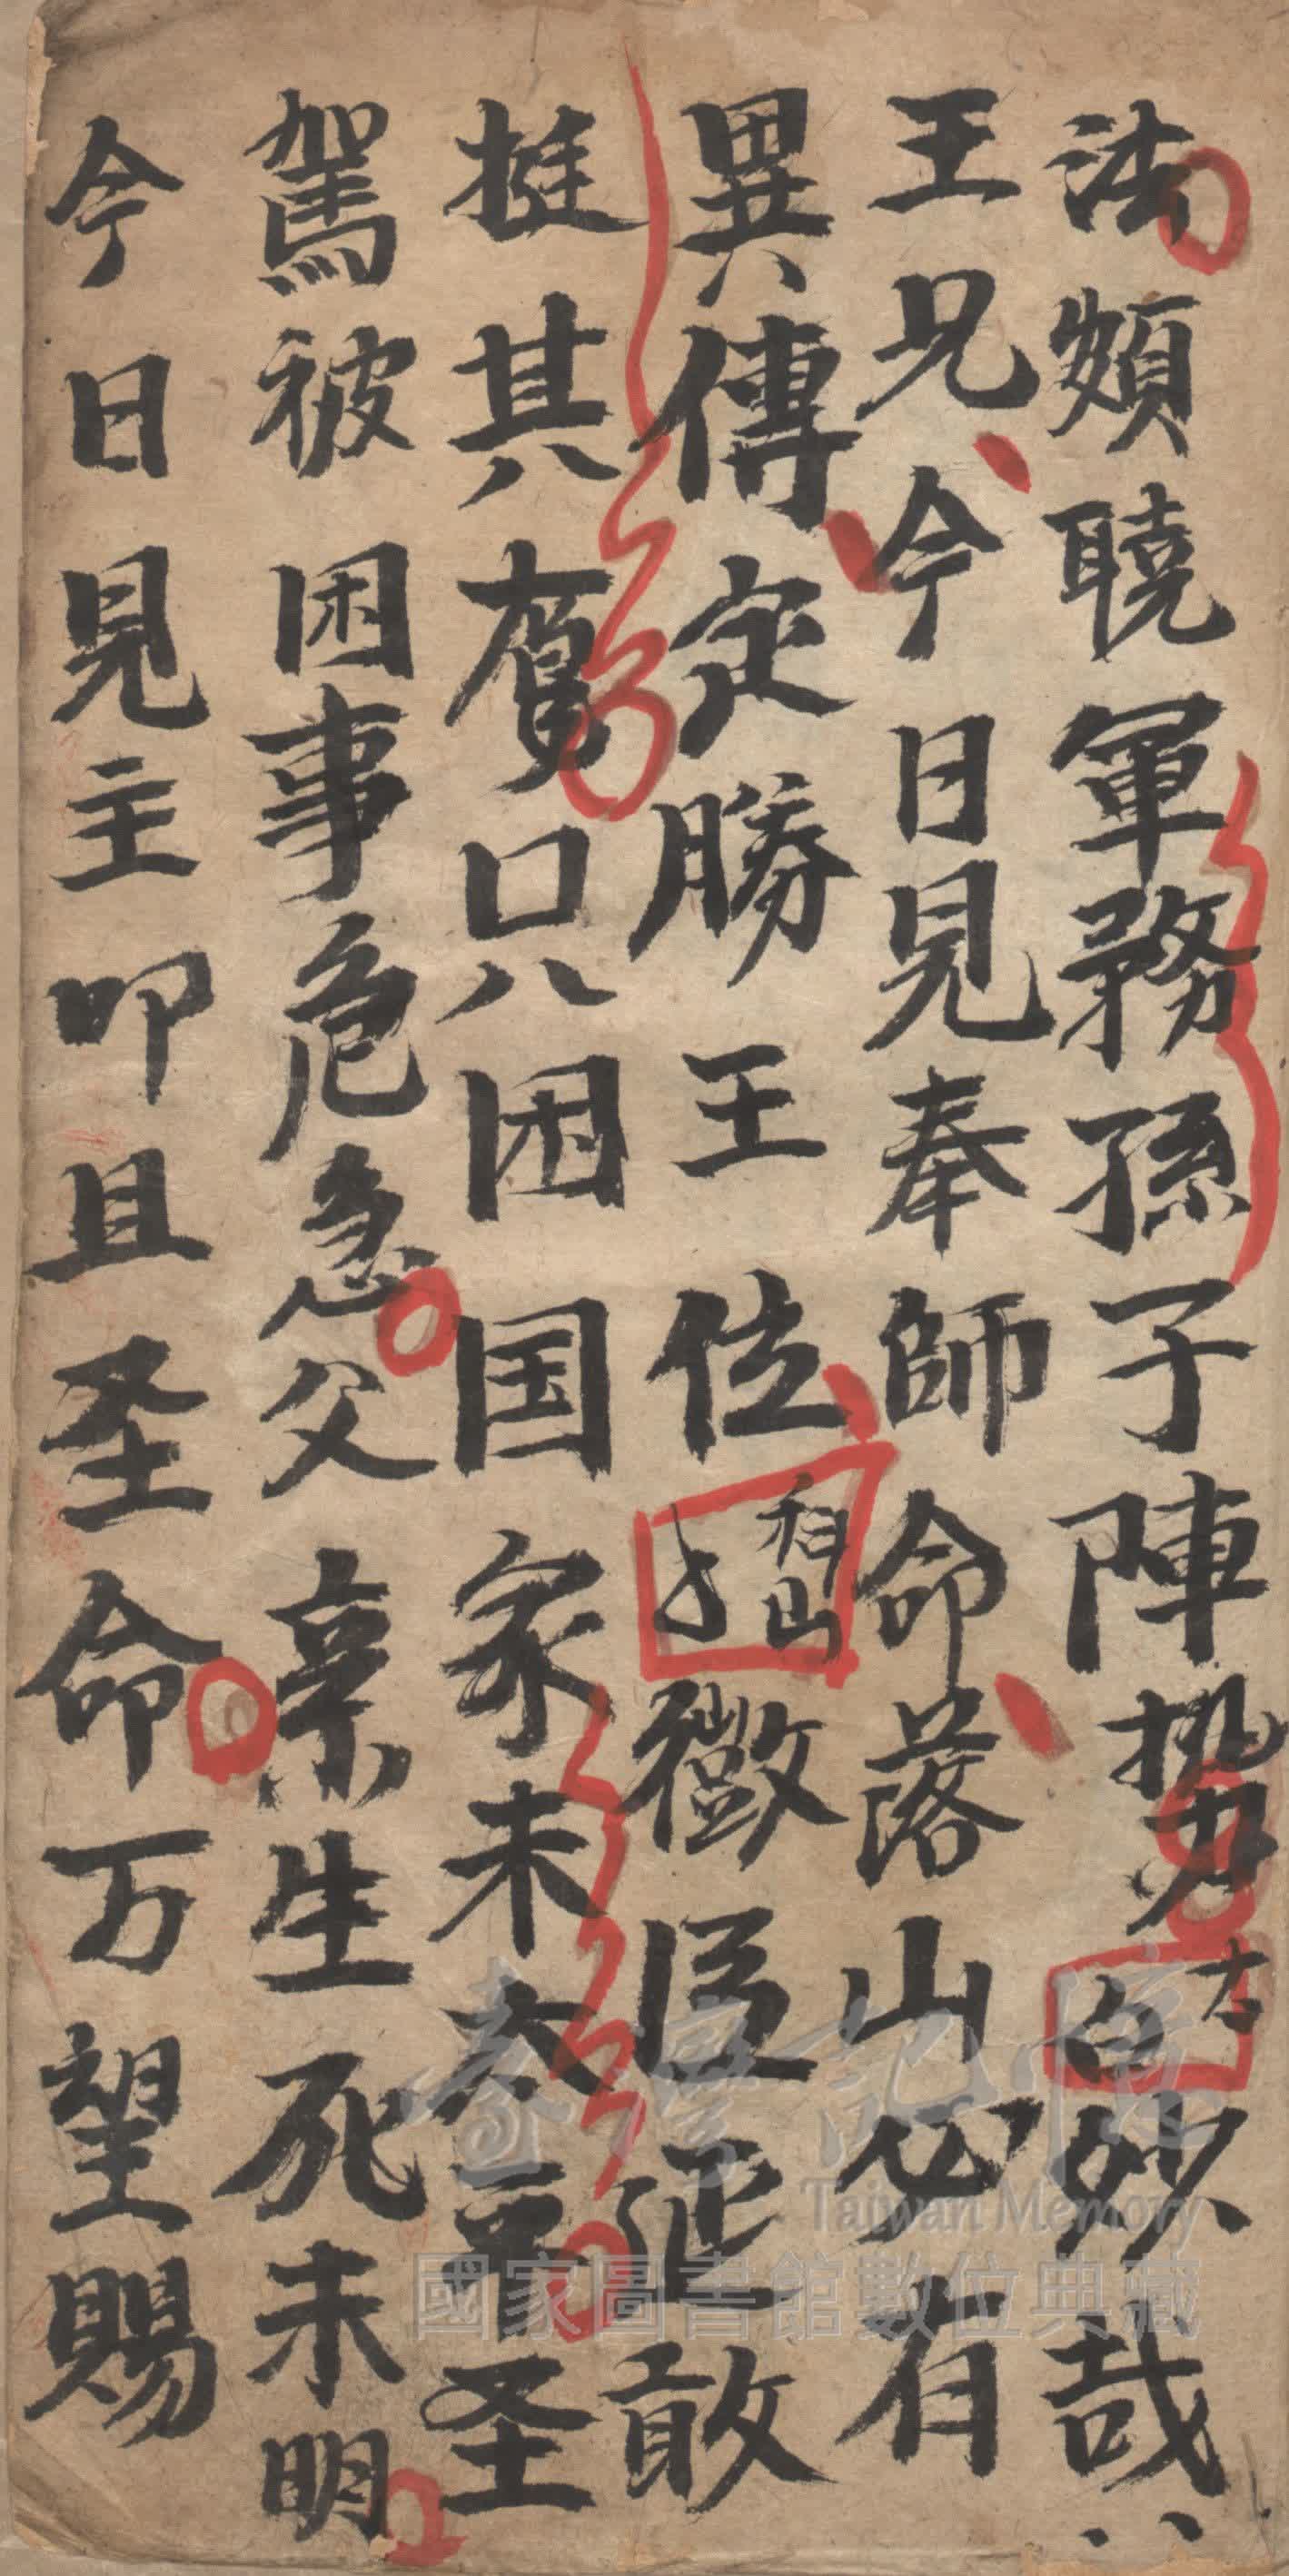 法頗曉軍務孫子陣势太白妙哉〻
王兄今日見奉師命落山必有
異傳定勝王位科山才徵臣延敢
挺其只困国家未太平圣
駕被困事危急父亲生死未明
今日見主叩且圣命万望賜
臺灣記憶
Taiwan Memory
國家圖書館數位典藏